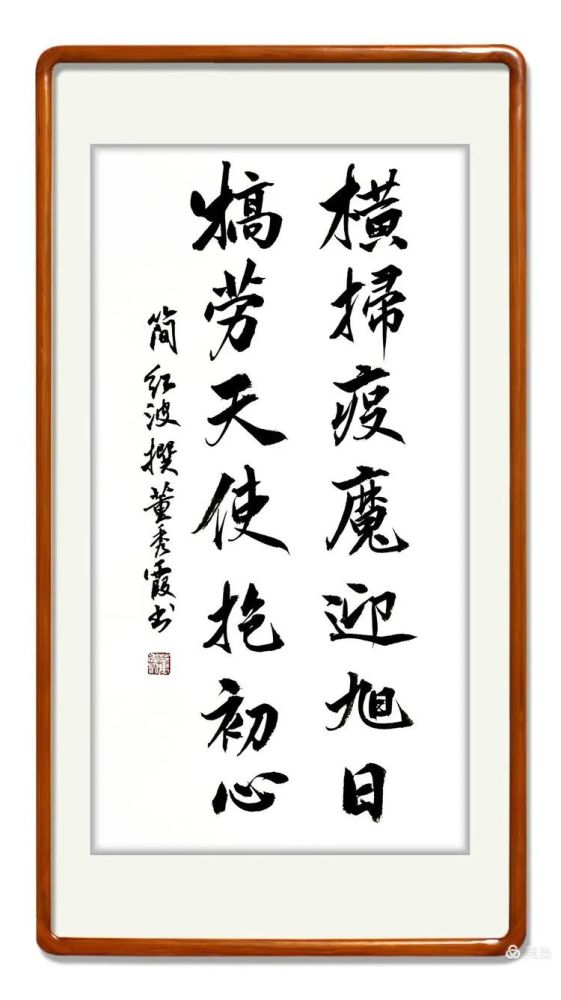 橫掃疫魔迎旭日
犒劳天使抱初心
简红波撰董秀霞书
美篇